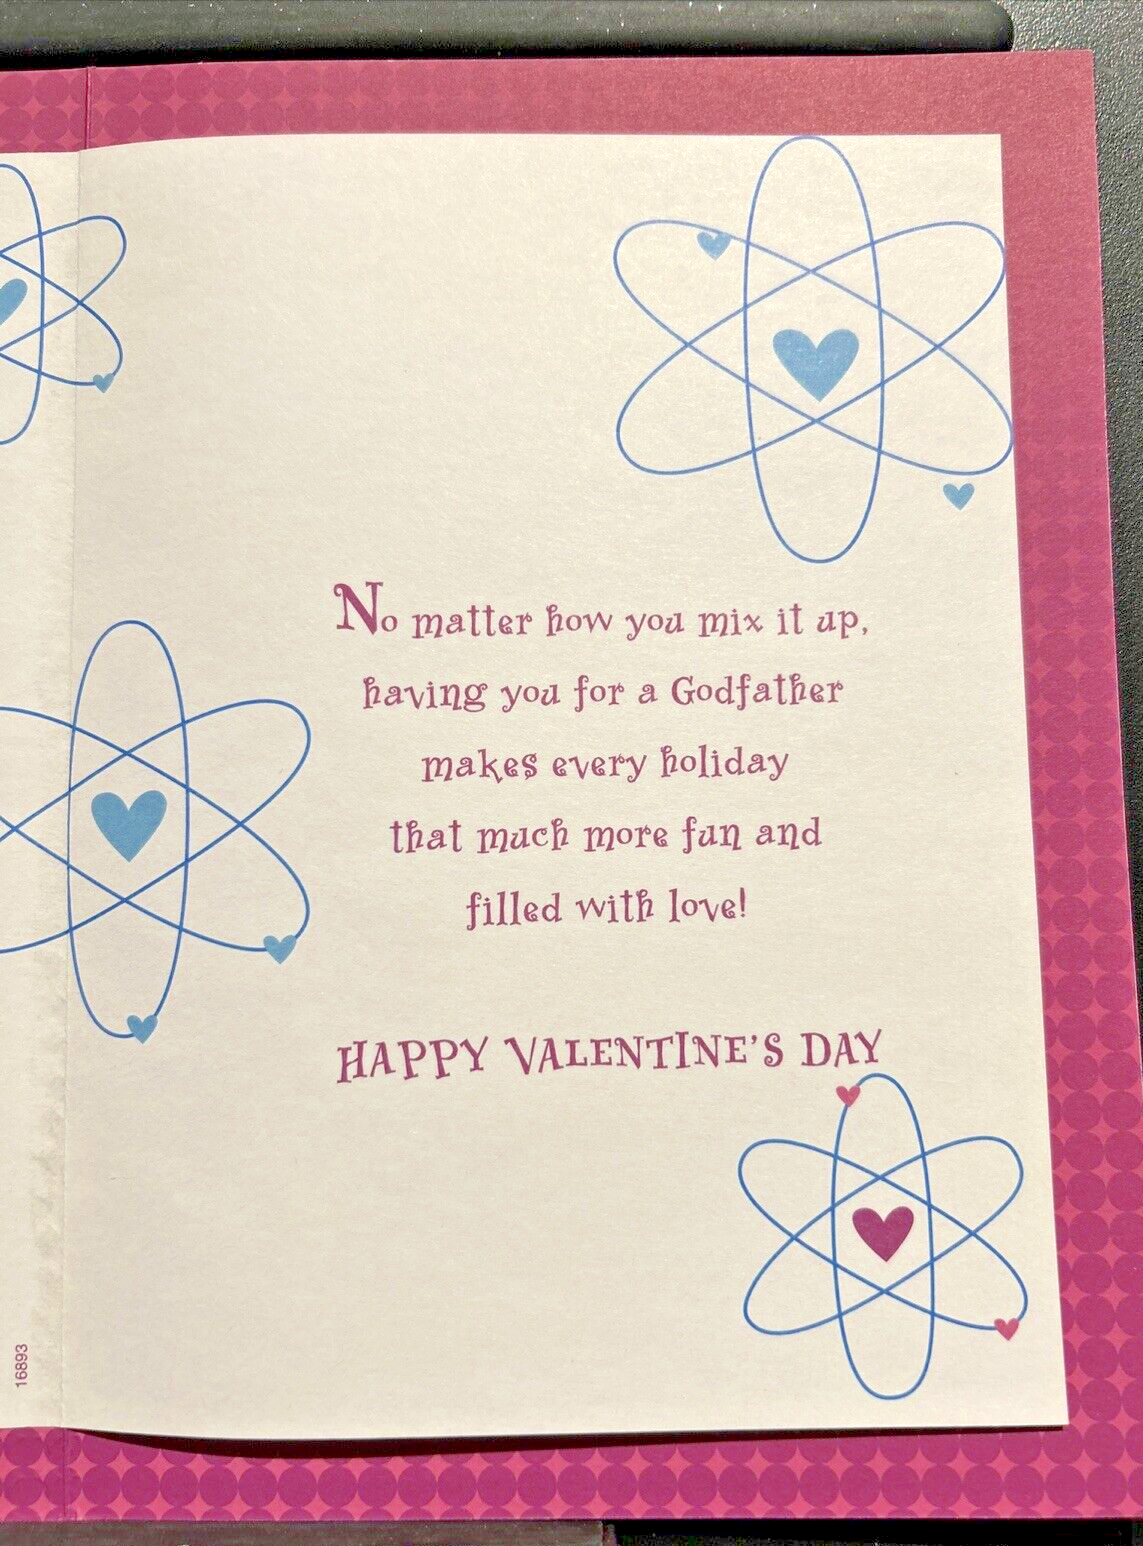 No matter how you mix it up,
having you for a Godfather
makes every holiday
that much more fun and
filled with love!
HAPPY VALENTINE'S DAY
16893